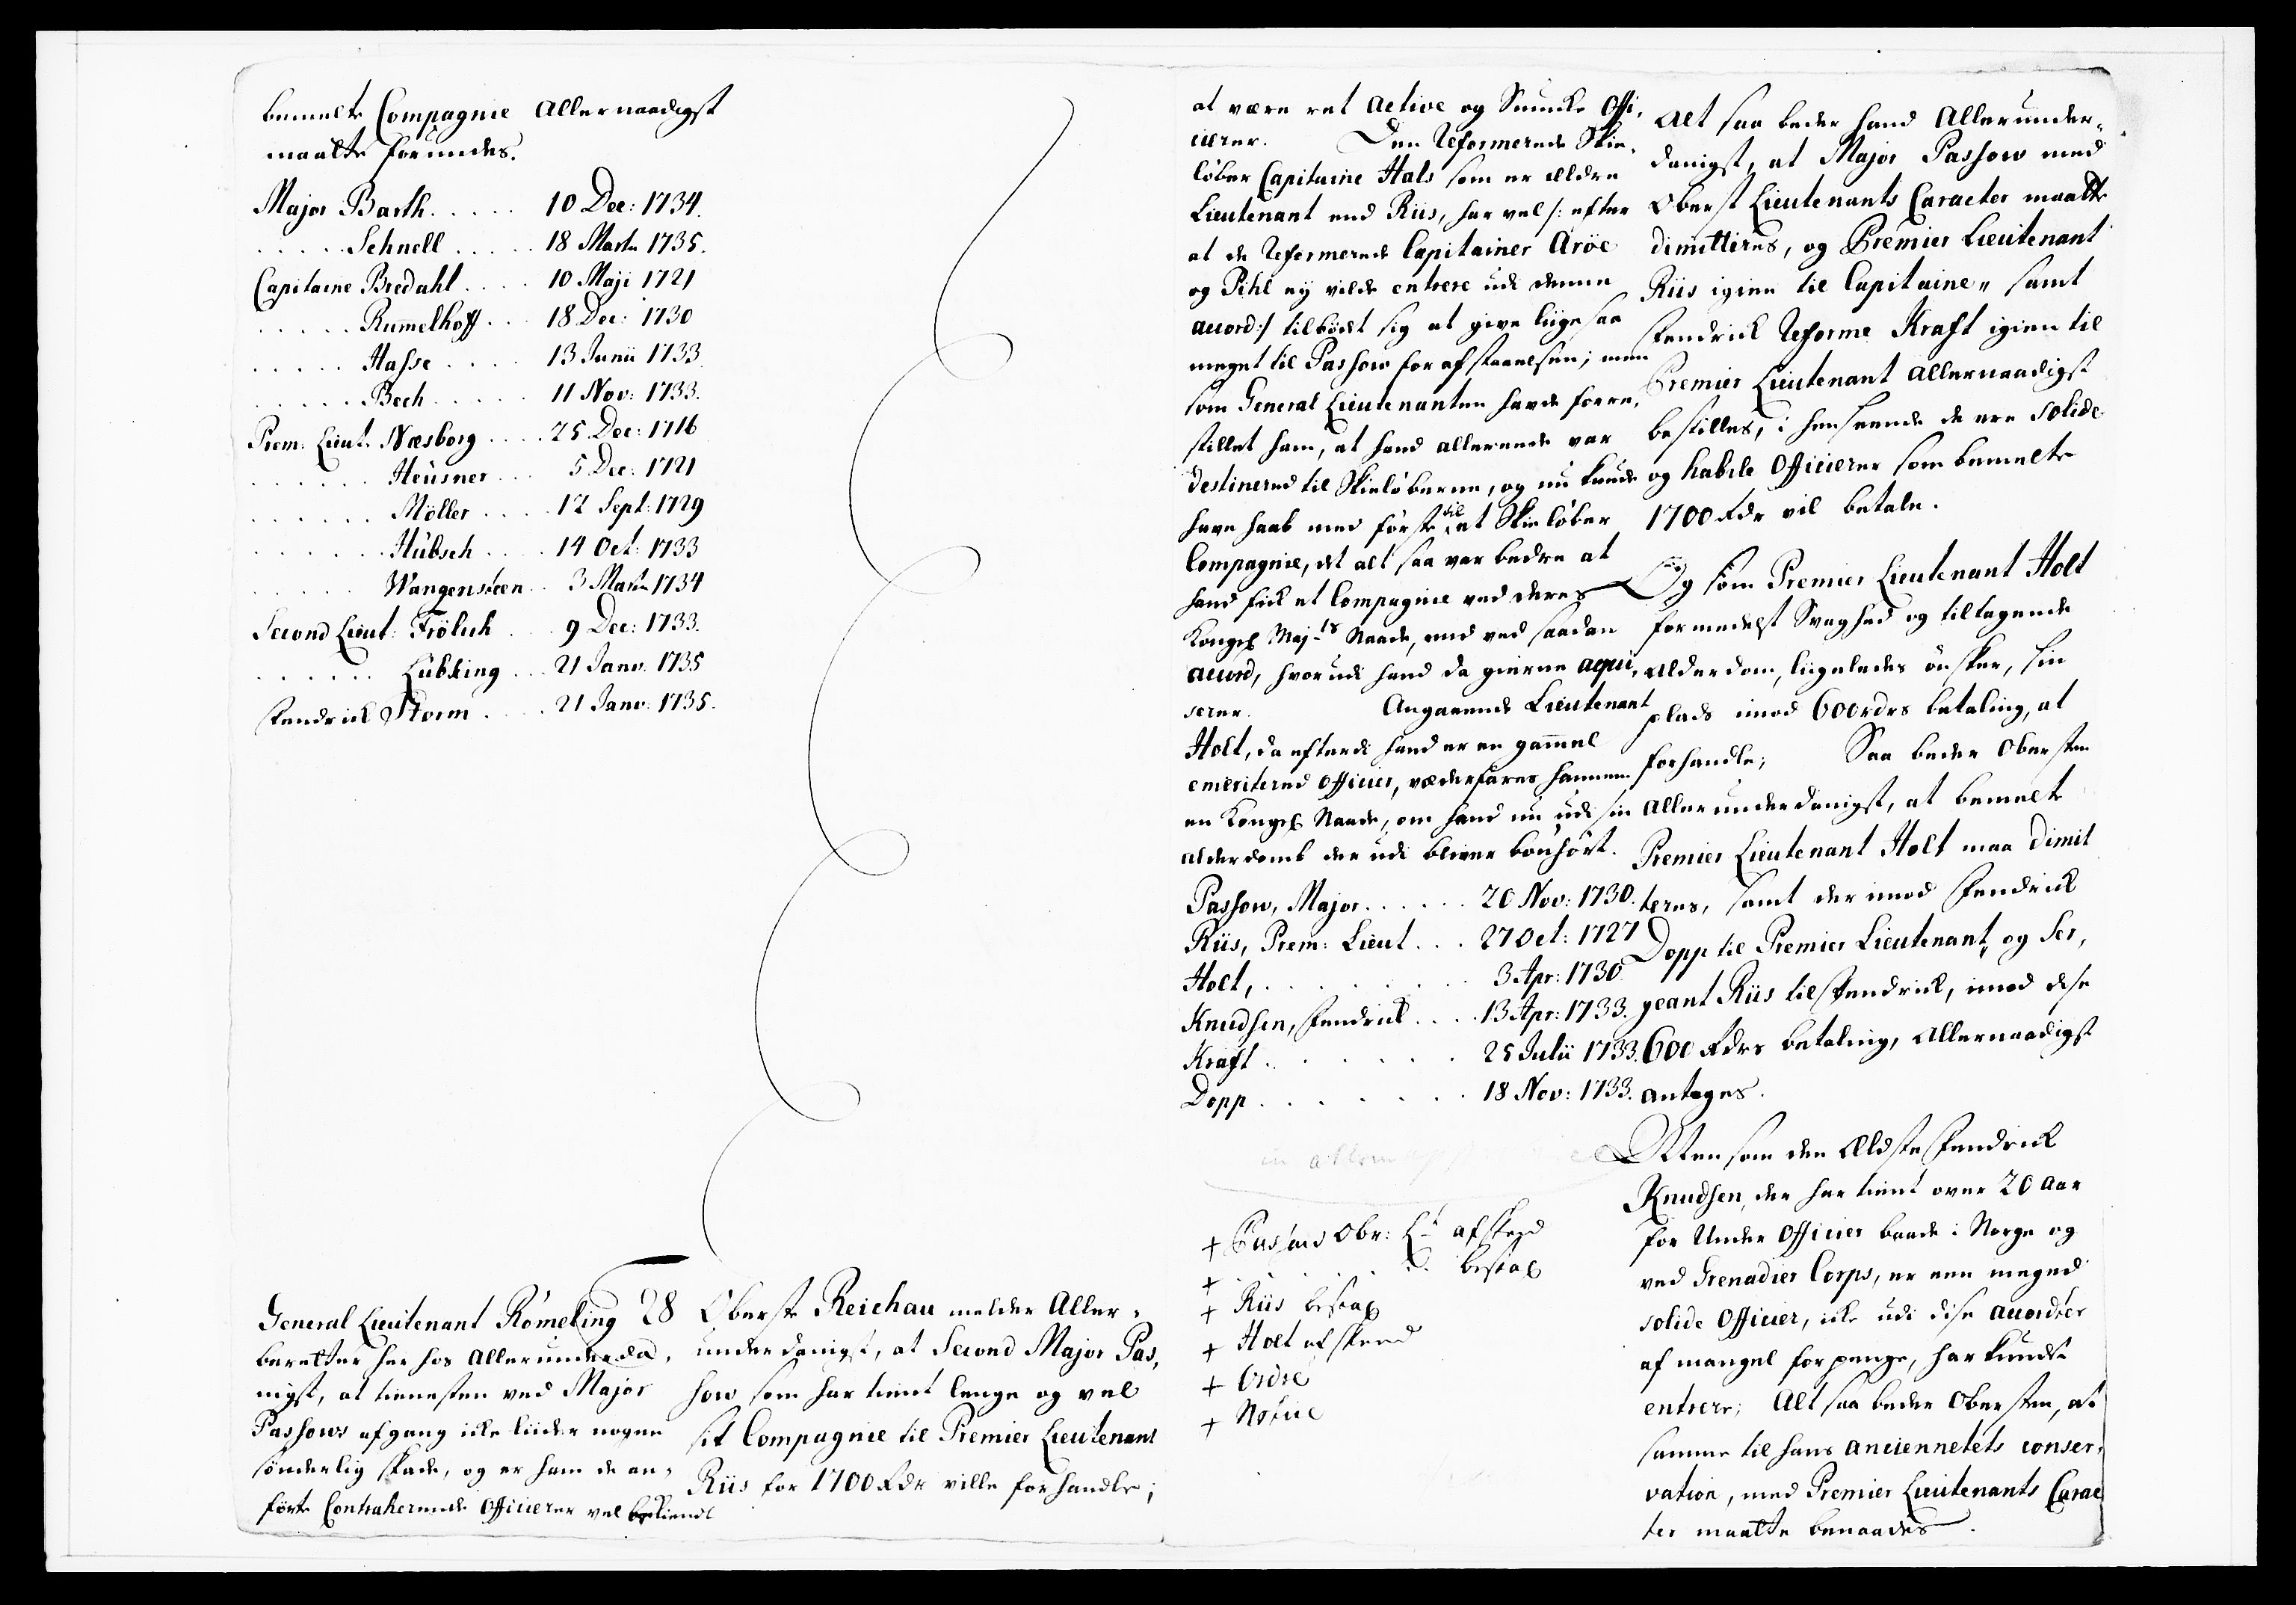 bemelte Compagnie Allernaadigst
maatte forundes.
Major Barth ..... 10 Dec: 1734.
..... Schnell ..... 18 Marty 1735.
Capitaine Bredahl .... 10 Maji 1721
..... Rumelhoff ... 18 Dec: 1730
..... Hasse .... 13 Junii 1733
..... Bech ..... 11 Nov: 1733.
Prem: Lieut. Næsborg .... 25 Dec: 1716
...... Heüsner ... 5 Dec: 1721
...... Möller .... 12 Sept: 1729
...... Hübsch .... 14 Oct: 1733
..... Wangensteen .. 3 Marty 1734
Second Lieut: Frölich ... 9 Dec: 1733.
...... Lübking ... 21 Janv. 1735
Fendrick Storm .... 21 Janv: 1735.
General Lieutenant Römeling
beretter her hos Allerunderda,
nigst, at tienesten ved Major
Passows afgang icke liider nogen
sönderlig skade, og er ham de an,
förte Contraherende Officierer vel bekiendt
28 Oberste Reichau melder Aller,
underdanigst, at Second Major Pas,
sow som har tient lenge og vel
sit Compagnie til Premier Lieutenant
Riis for 1700 Rdr ville forhandle;
at være ret active og Smucke Offi,
cierer. Den Reformerede Skie,
löber Capitaine Hals som er ældre
Lieutenant end Riis, har vel /: efter
at de Reformerede Capitainer Aröe
og Pihl ey vilde entrere udi denne
accord :/ tilbödt sig at give liige saa
meget til Passow for afstaaelsen; men
som General Lieutenanten havde forre,
stillet ham, at hand allereede var
destinered til Skielöberne, og nu kunde
have haab med förste til et Skielöber
Compagnie, det alt saa var bedre at
hand fick et Compagnie ved deres
Kongl Maj-ts Naade, end ved saadan
accord, hvorudi hand da gierne acqui,
scerer. Angaaende Lieutenant
Holt, da efterdi hand er en gammel
emeritered Officier, vederfares hannem
en Kongl Naade, om hand nu udi sin
alderdomb der udi bliver bönhört.
Passow, Major ...... 20 Nov: 1730.
Riis, Prem: Lieut ... 27 Oct: 1727
Holt, ........ 3 Apr: 1730
Knudsen, Fendrick .... 13 Apr: 1733.
Kraft ....... 25 Julii 1733.
Dopp ....... 18 Nov: 1733.
+ Passows Obr: Lt afskeed
+ ..... bestal
+ Riis bestal
+ Holt afskeed
+ Ordre
+ Notice
Alt saa beder hand Allerunder,
danigst, at Major Passow med
Oberst Lieutenants Caracter maatte
dimitteres, og Premier Lieutenant
Riis igien til Capitaine, samt
Fendrick Reforme Kraft igien til
Premier Lieutenant allernaadigst
bestilles, i henseende de ere solide
og habile Officierer som bemelte
1700 Rdr vil betale.
Og som Premier Lieutenant Holt
formedelst Svaghed og tiltagende
alderdom, liigeledes önsker, sin
plads imod 600 rdrs betaling, at
forhandle; Saa beder Obersten
allerunderdanigst, at bemelte
Premier Lieutenant Holt maa dimit
teres, samt der imod Fendrick
Dopp til Premier Lieutenant, og Ser,
geant Riis til Fendrick, imod disse
600 Rdrs betaling, Allernaadigst
antages.
Men som den Eldste Fendrick
Knudsen, der har tient over 20 aar
for Under Officier baade i Norge og
ved Grenadier Corps, er een meged
solide Officier, icke udi disse accorder
af mangel for penge, har kundt
entrere; Alt saa beder Obersten, at
samme til hans anciennetets conser,
vation, med Premier Lieutenants Carac
ter maatte benaades.